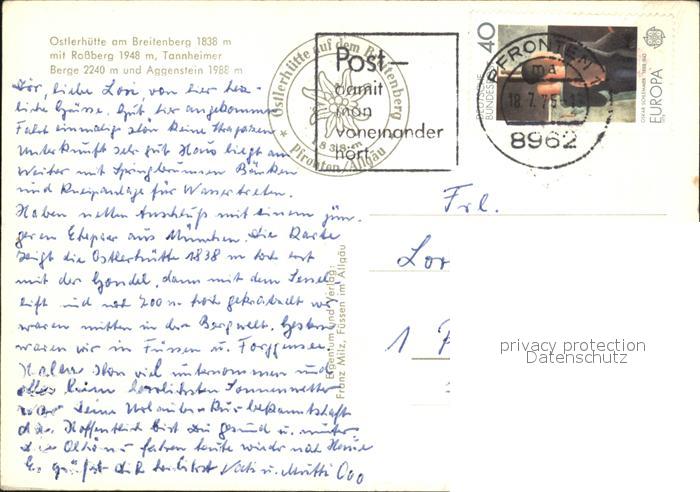 Ostlerhütte am Breitenberg 1838 m
mit Roßberg 1948 m, Tannheimer
Berge 2240 m und Aggenstein 1988 m
Ostlerhütte auf dem Breitenberg
1838 m
Pfronten/Allgäu
Post –
damit
man
voneinander
hört.
PFRONTEN
18.7.75
8962
40
DEUTSCHE BUNDESPOST
EUROPA
liebe Lori von hier herz-
liche Grüsse. Gut hier angekommen
Fahrt einmalig schön keine Strapazen
Unterkunft sehr gut Haus liegt am
Weiter mit Springbrunnen Bänken
und Kneipanlage für Wassertreten.
Haben netten Anschluß mit einem jün-
geren Ehepaar aus München. Die Karte
zeigt die Ostlerhütte 1838 m hoch erst
mit der Gondel, dann mit dem Sessel-
lift und noch 200 m hoch gekraxelt wir
waren mitten in der Bergwelt. Gestern
waren wir in Füssen u. Forggensee
Haben schon viel unternommen und
alles beim herrlichsten Sonnenwetter
Deine Urlaubs-Kurbekanntschaft
Hoffentlich bist Du gesund u. munter
fahren heute wieder nach Hause
Es grüßt dich herzlichst Vati u. Mutti
Eigentum und Verlag:
Franz Milz, Füssen im Allgäu
Frl.
Lor
1
privacy protection
Datenschutz